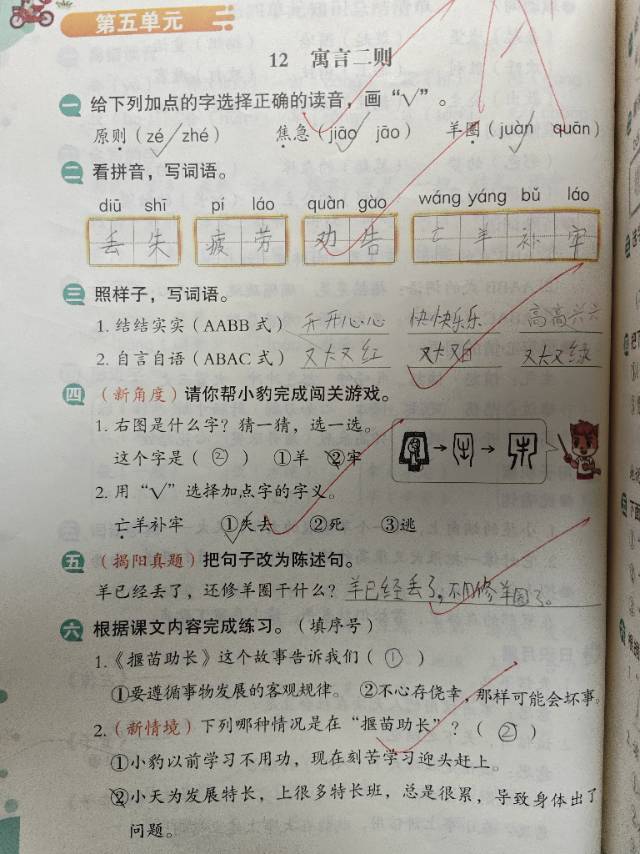 第五单元
12 寓言二则
一 给下列加点的字选择正确的读音，画“√”。
原则（zé√ zhé） 焦急（jiāo√ jāo） 羊圈（juàn√ quān）
二 看拼音，写词语。
diū shī pí láo quàn gào wáng yáng bǔ láo
丢失 疲劳 劝告 亡羊补牢
三 照样子，写词语。
1. 结结实实（AABB 式） 开开心心 快快乐乐 高高兴兴
2. 自言自语（ABAC 式） 又大又红 又大又白 又大又绿
四 （新角度）请你帮小豹完成闯关游戏。
1. 右图是什么字？猜一猜，选一选。
这个字是（ ② ） ①羊 ②牢
2. 用“√”选择加点字的字义。
亡羊补牢 ①失去√ ②死 ③逃
五 （揭阳真题）把句子改为陈述句。
羊已经丢了，还修羊圈干什么？ 羊已经丢了，不用修羊圈了。
六 根据课文内容完成练习。（填序号）
1.《揠苗助长》这个故事告诉我们（ ① ）
①要遵循事物发展的客观规律。 ②不心存侥幸，那样可能会坏事。
2.（新情境）下列哪种情况是在“揠苗助长”？（ ② ）
①小豹以前学习不用功，现在刻苦学习迎头赶上。
②小天为发展特长，上很多特长班，总是很累，导致身体出了
问题。